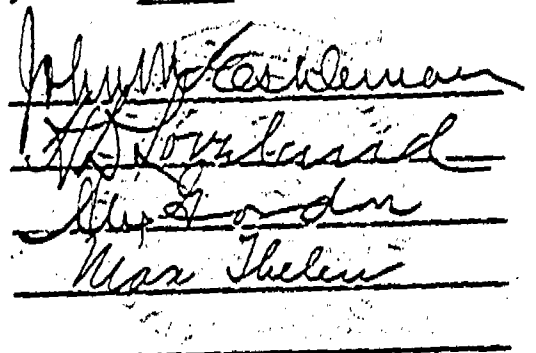 John M Eshleman
H D Loveland
Alex Gordon
Max Thelen